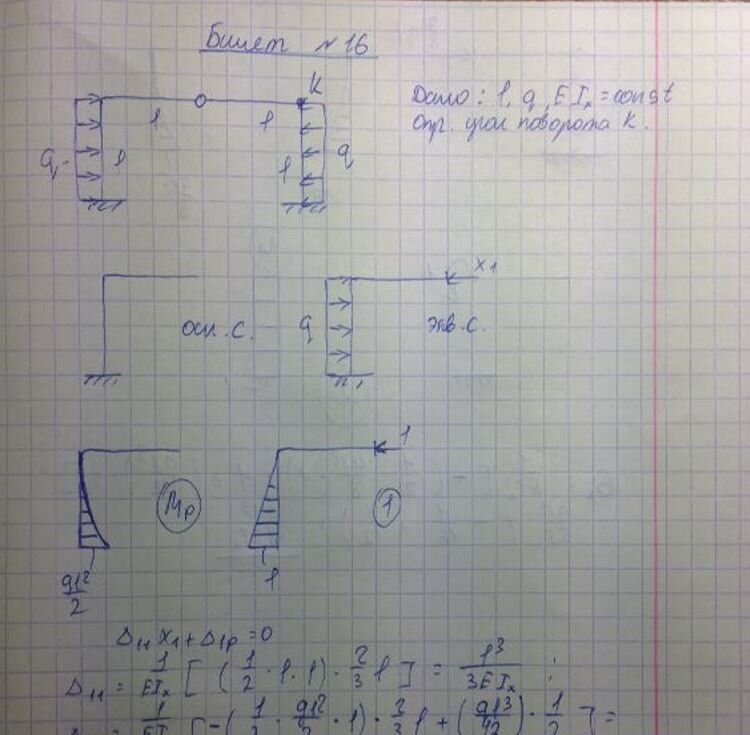 Билет №16
K
Дано: l, q, EIₓ = const
Опр. угол поворота K.
l l
q l l q
x₁
осн. с. q экв. с.
1
Mp 1
ql²/2 l
Δ₁₁x₁ + Δ₁p = 0
Δ₁₁ = 1/EIₓ [ (1/2 · l · l) · 2/3 l ] = l³/3EIₓ ;
1/EI [ -(1/3 · ql²/2 · l) · 2/3 l + (ql³/42) · 1/2 ] =